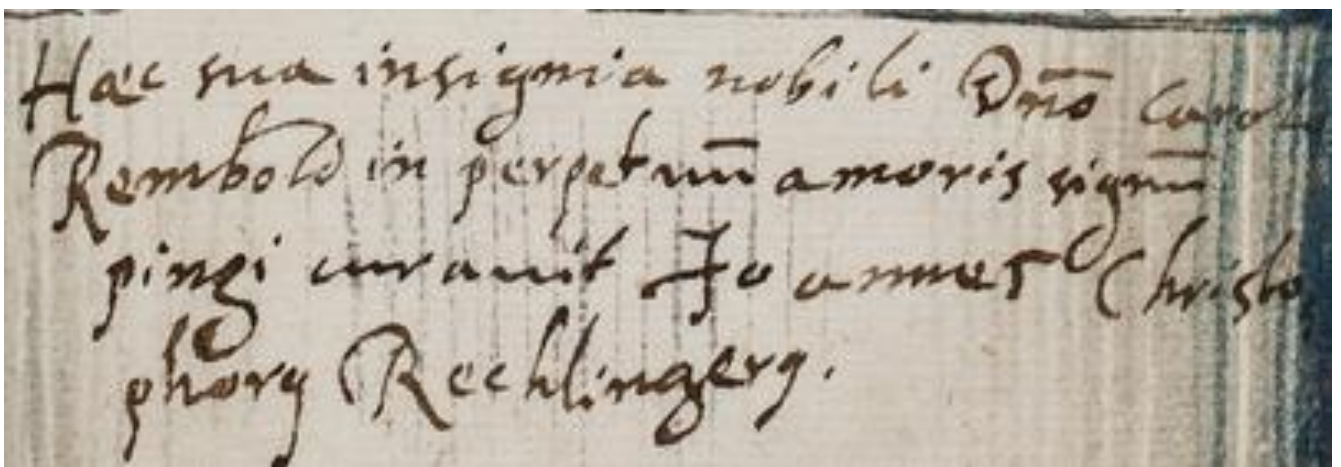 Haec sua insignia nobili Dnō Carolo
Rembold in perpetuū amoris signū
pingi curauit Joannes Christo
phorꝯ Rechlingerꝯ.